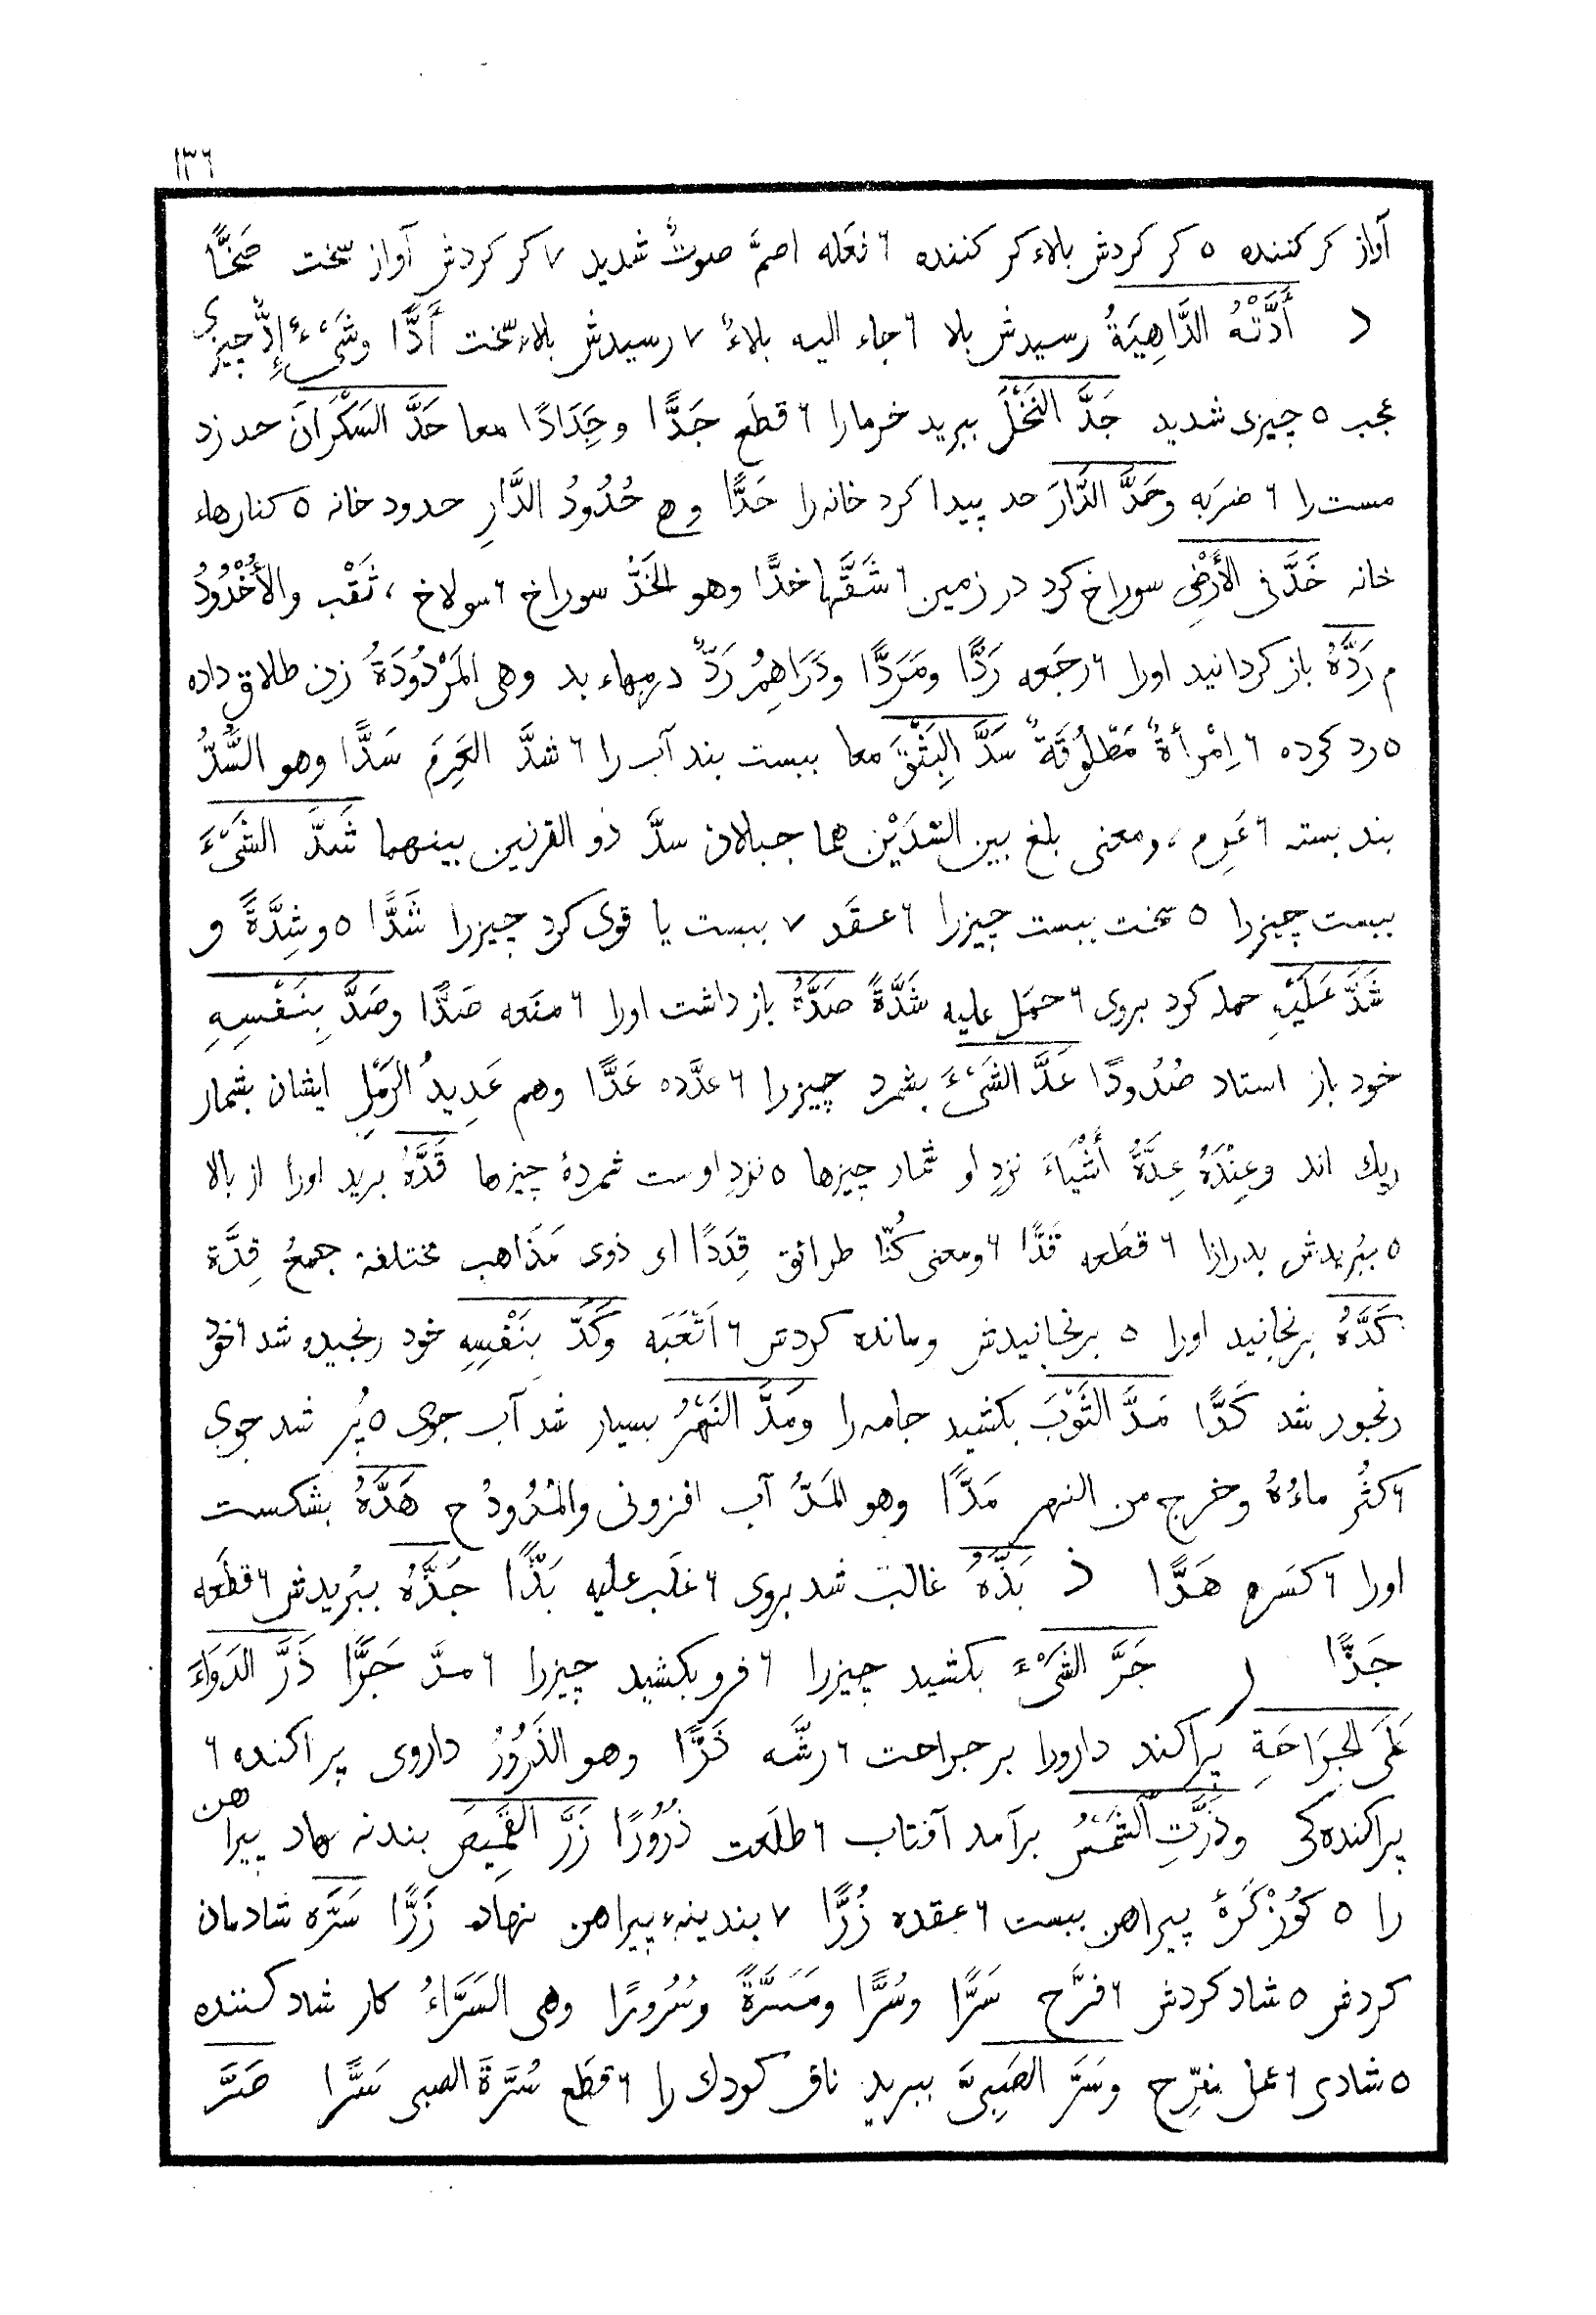 ١٣٦
آواز کر کننده ٥ کر کردش بلاء کر کننده ٦ فعله اصمَّ صوتٌ شدید ٧ کر کردش آواز سخت صَخًّا
د أَدَّتْهُ الدَّاهِيَةُ رسیدش بلا ٦ جاء الیه بلاءٌ ٧ رسیدش بلاء سخت أَدًّا وشَیْءٌ إِدٌّ چیزی
عجب ٥ چیزی شدید جَدَّ النَّخْلَ ببرید خرما را ٦ قطَع جَدًّا وجَِدَادًا معا حَدَّ السَّكْرَانَ حد زد
مست را ٦ ضرَبه وحَدَّ الدَّارَ حد پیدا کرد خانه را حَدًّا وهى حُدُودُ الدَّارِ حدود خانه ٥ کنارهاء
خانه خَدَّ فى الأَرْضِ سوراخ کرد در زمین ٦ شَقَّها خدًّا وهو الخَدُّ سوراخ ٦ سولاخ ، ثَقْب والأُخْدُودُ
م رَدَّهُ باز گردانید اورا ٦ رجَعه رَدًّا ومَرَدًّا ودَرَاهِمُ رَدٌّ درمهاء بد وهى المَرْدُودَةُ زن طلاق داده
٥ رد کرده ٦ اِمْرأةٌ مَطْلُوقَةٌ سَدَّ البَِثْقَ معا ببست بند آب را ٦ شدَّ العَرِمَ سَدًّا وهو السَُّدُّ
بند بسته ٦ عَرِم ، ومعنى بلغ بین السَّدَیْن هما جبلان سدَّ ذو القرنین بینهما شَدَّ الشَّیْءَ
ببست چیز را ٥ سخت ببست چیز را ٦ عقَد ٧ ببست یا قوی کرد چیز را شَدًّا ٥ وشِدَّةً و
شَدَّ عَلَيْهِ حمله کرد بروی ٦ حمَل علیه شَدَّةً صَدَّهُ باز داشت اورا ٦ منَعه صَدًّا وصَدَّ بِنَفْسِهِ
خود باز استاد صُدُودًا عَدَّ الشَّیْءَ بشمرد چیز را ٦ عدَّده عَدًّا وهم عَدِیدُ الرَّمْلِ ایشان بشمار
ریك اند وعِنْدَهُ عِدَّةُ أَشْیَاءَ نزدِ او شمار چیزها ٥ نزدِ اوست شمردۀ چیزها قَدَّهُ برید اورا از بالا
٥ ببُریدش بدرازا ٦ قطَعه قَدًّا ٦ ومعنى كُنَّا طرائق قِدَدًا اى ذوى مَذَاهب مختلفة جمعُ قِدَّة
كَدَّهُ برنجانید اورا ٥ برنجانیدش ومانده کردش ٦ اَتْعَبَه وكَدَّ بِنَفْسِهِ خود رنجیده شد ٦ خود
رنجور شد كَدًّا مَدَّ الثَّوْبَ بکشید جامه را ومَدَّ النَّهْرُ بسیار شد آب جوی ٥ پُر شد جوی
٦ كثُر ماءُهُ وخرج من النهر مَدًّا وهو المَدُّ آب افزونی والمُدُودُ ج هَدَّهُ بشکست
اورا ٦ كسَره هَدًّا ذ بَذَّهُ غالب شد بروی ٦ غلَب علیه بَذًّا جَذَّهُ ببُریدش ٦ قطَعه
جَذًّا ر جَرَّ الشَّیْءَ بکشید چیز را ٦ فرو بکشید چیز را ٦ مدَّ جَرًّا ذَرَّ الدَّوَاءَ
عَلَى الجِرَاحَةِ پراکند دارو را بر جراحت ٦ رشَّه ذَرًّا وهو الذَّرُورُ داروی پراکنده ٦
پراکندگی وذَرَّتِ الشَّمْسُ برآمد آفتاب ٦ طلَعت ذُرُورًا زَرَّ القَمِیصَ بندنه نهاد پیراهن
را ٥ گُوزْ گَرَۀ پیراهن ببست ٦ عقده زُرًّا ٧ بندینۀ پیراهن نهاد زَرًّا سَرَّه شادمان
کردش ٥ شاد کردش ٦ فرَّح سَرًّا وسُرًّا ومَسَرَّةً وسُرُورًا وهى السَرَّاءُ کار شاد کننده
٥ شادی ٦ عمل مفرِّح وسَرَّ الصَبِيَّ ببرید ناف کودك را ٦ قطَع سُرَّةَ الصبى سَرًّا صَرَّ